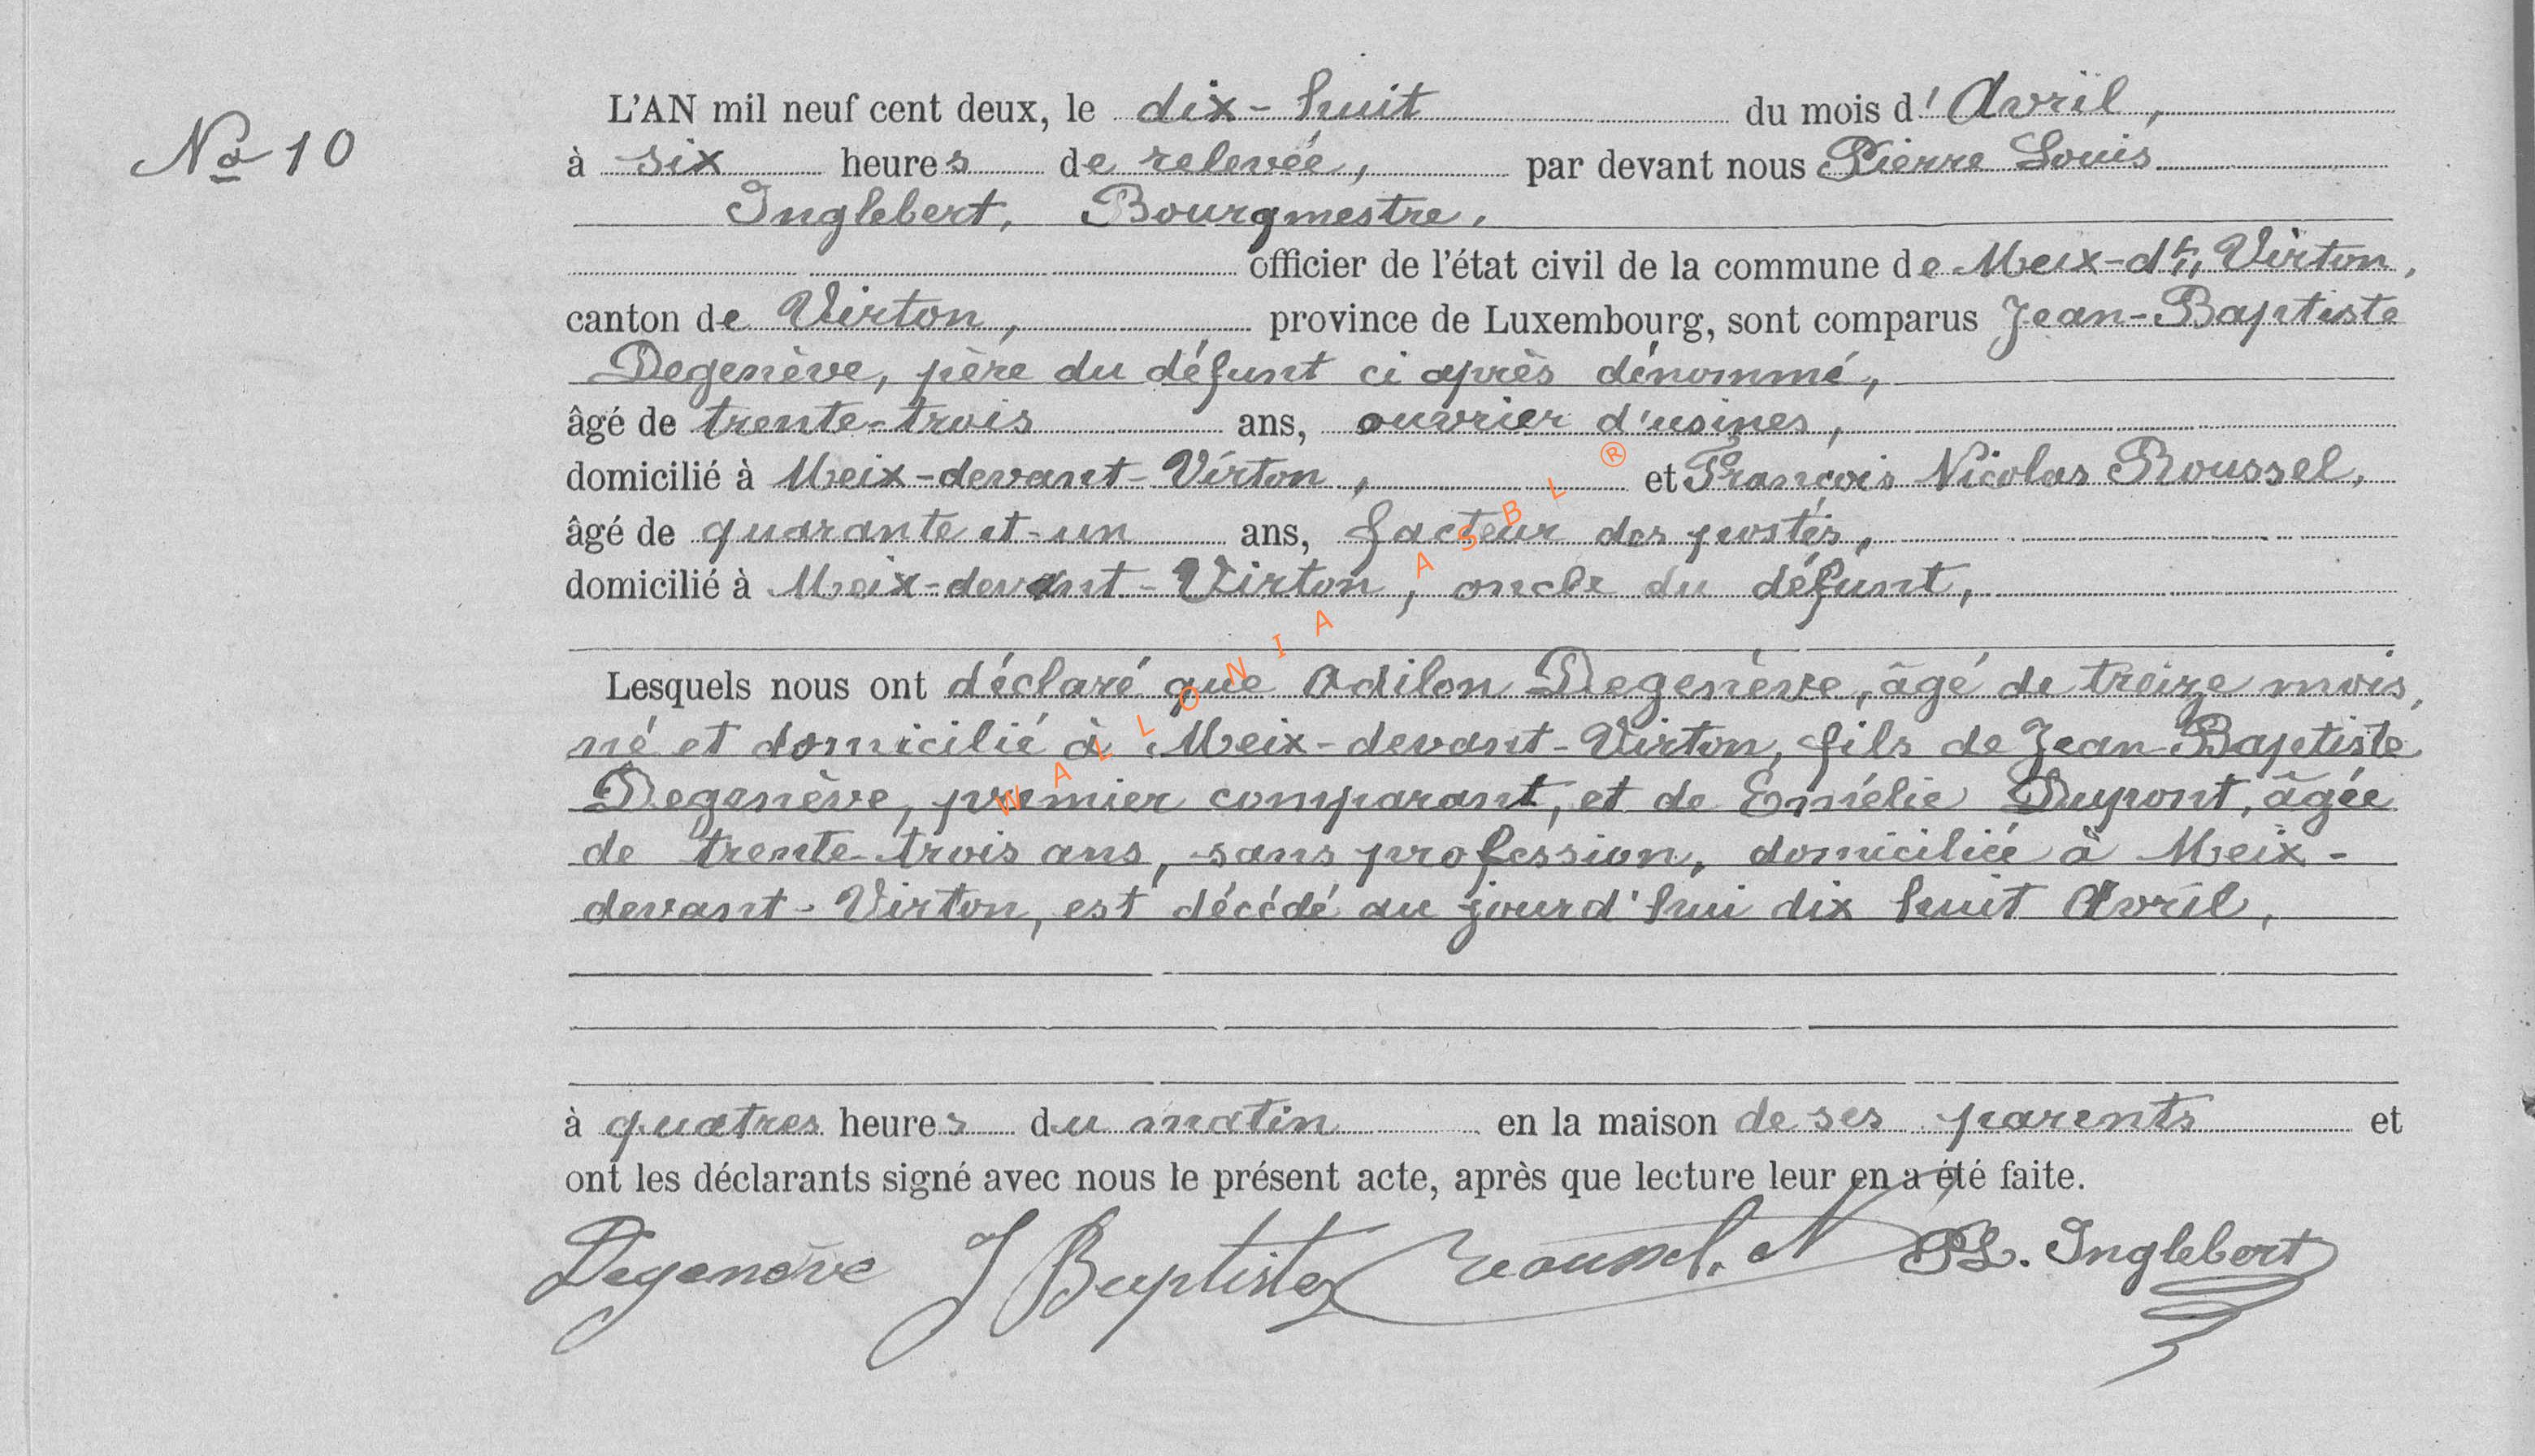 No 10
L'AN mil neuf cent deux, le dix-huit du mois d'Avril,
à six heures de relevée, par devant nous Pierre Louis
Inglebert, Bourgmestre,
officier de l'état civil de la commune de Meix-dt, Virton,
canton de Virton, province de Luxembourg, sont comparus Jean-Baptiste
Degenève, père du défunt ci après dénommé,
âgé de trente-trois ans, ouvrier d'usines,
domicilié à Meix-devant-Virton, et François Nicolas Roussel,
âgé de quarante et-un ans, facteur des postes,
domicilié à Meix-devant-Virton, oncle du défunt,
Lesquels nous ont déclaré que Odilon Degenève, âgé de treize mois,
né et domicilié à Meix-devant-Virton, fils de Jean-Baptiste
Degenève, premier comparant, et de Emélie Dupont, âgée
de trente-trois ans, sans profession, domiciliée à Meix-
devant-Virton, est décédé au jourd'hui dix huit Avril,
à quatres heures du matin en la maison de ses parents et
ont les déclarants signé avec nous le présent acte, après que lecture leur en a été faite.
Degenève J Baptiste Roussel. N PL. Inglebert
WALLONIA ASBL ®